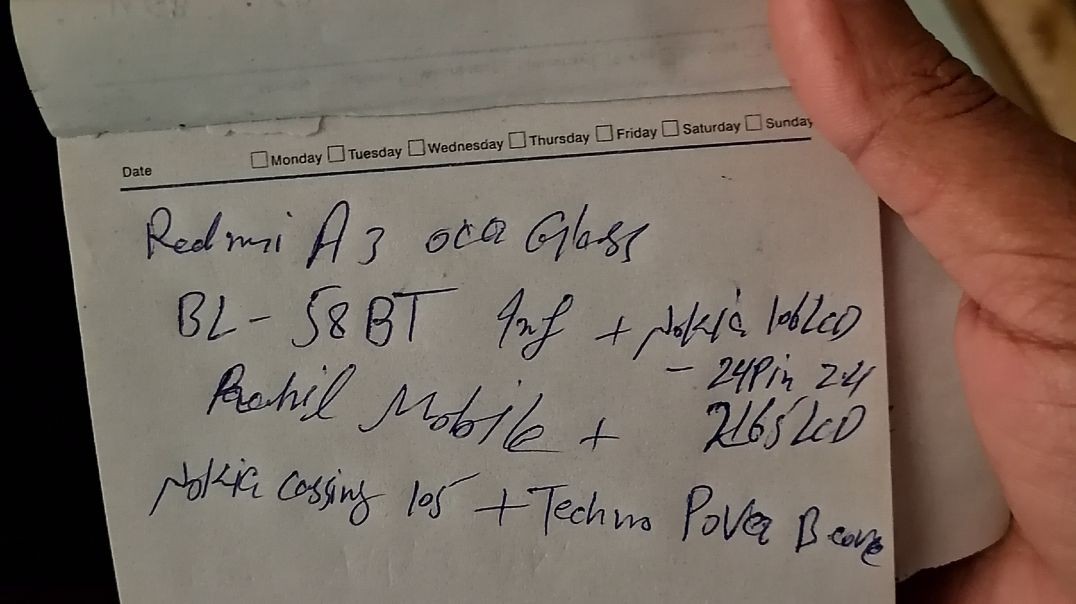 Date ☐ Monday ☐ Tuesday ☐ Wednesday ☐ Thursday ☐ Friday ☐ Saturday ☐ Sunday
Redmi A3 oca Glass
BL-58BT Inf + Nokia 106 LCD
- 24Pin 2.4
Rahil Mobile + LCD
Nokia Cassing 105 + Techno B